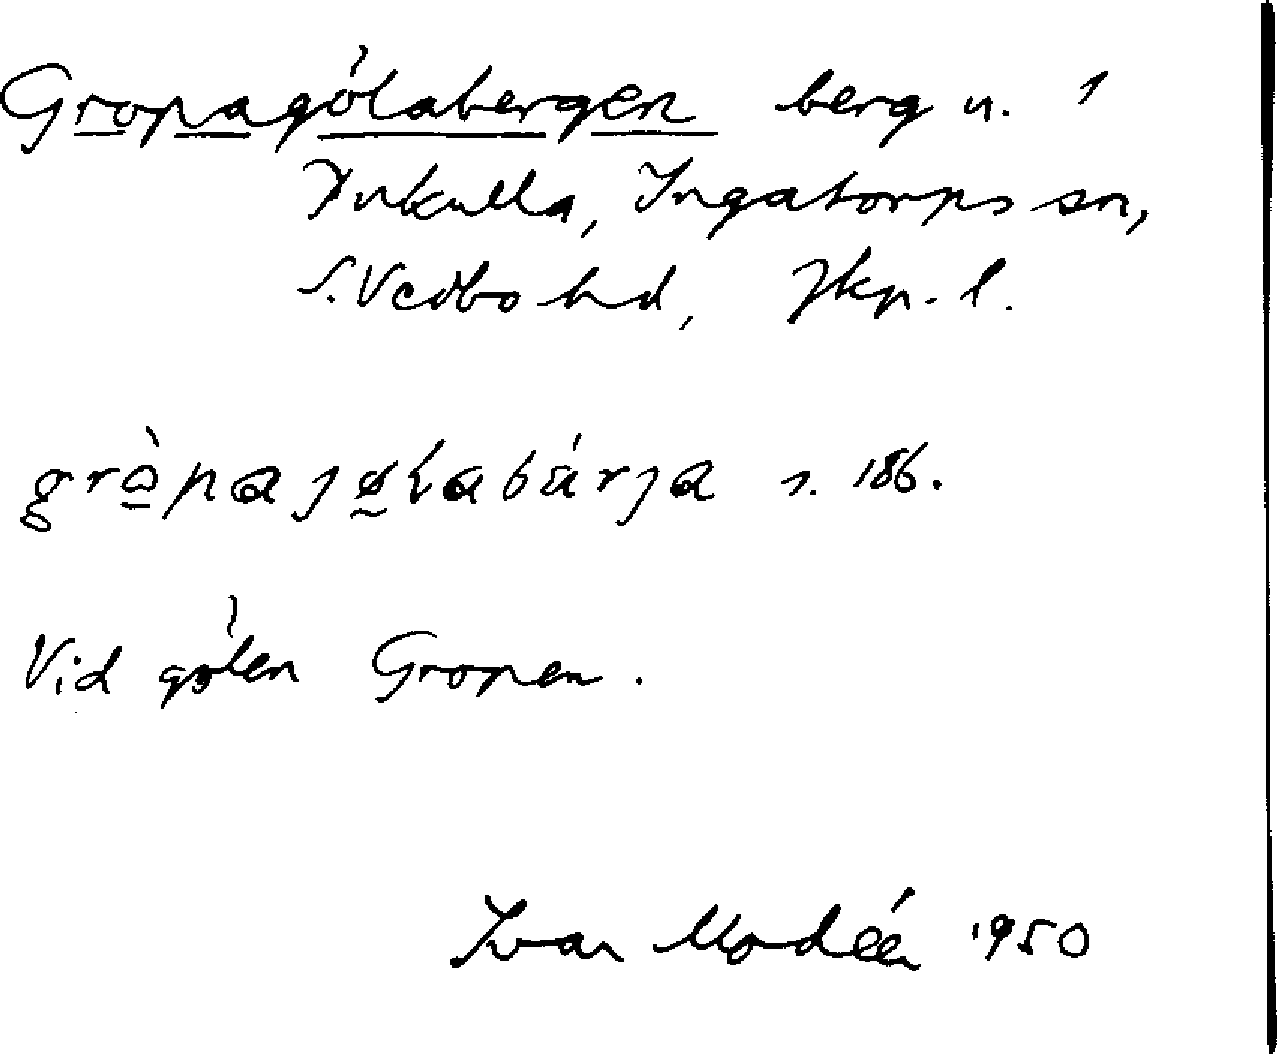 Gropagölabergen berg u. 1
Inkulla, Ingatorps sn,
S. Vedbo hd, Jkp. l.
s. 186.
Vid gölen Gropen.
Ivar Modéer 1950